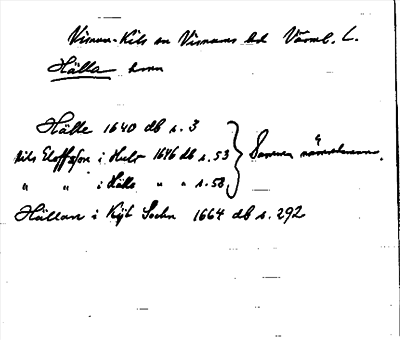 Visnum-Kils sn Visnums hd Värml. L.
Hälla hmn
Hälle 1640 db s. 3
Nils Eloffsson i 1646 db s. 53 Samma nämndeman.
" " i Hälle " " s. 58.
Hällan i Kijl Sochn 1664 db s. 292